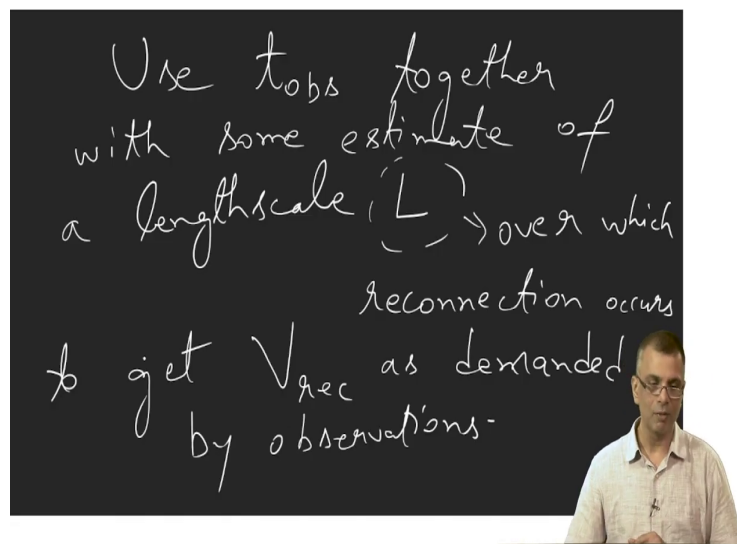 Use tobs together
with some estimate of
a lengthscale L → over which
reconnection occurs
to get Vrec as demanded
by observations.